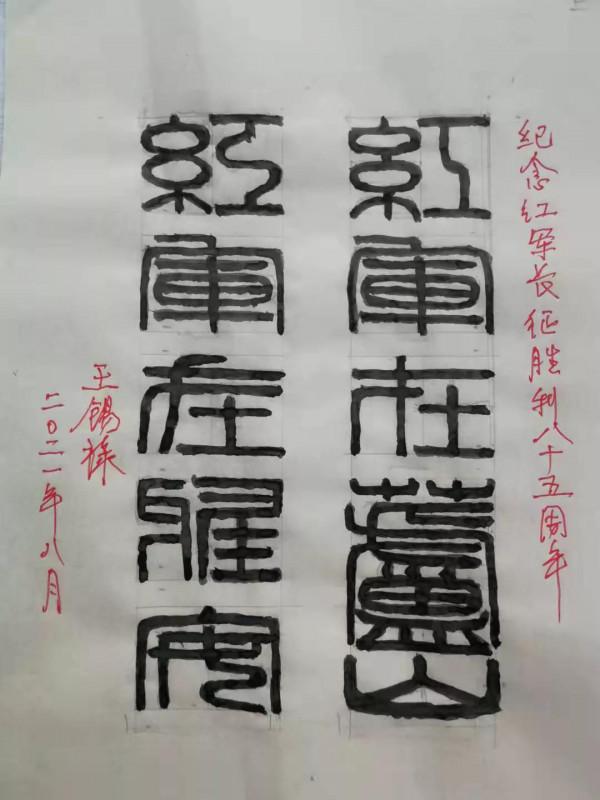 纪念红军长征胜利八十五周年
紅軍在蘆山
紅軍在雅安
王锡禄
二〇二一年八月